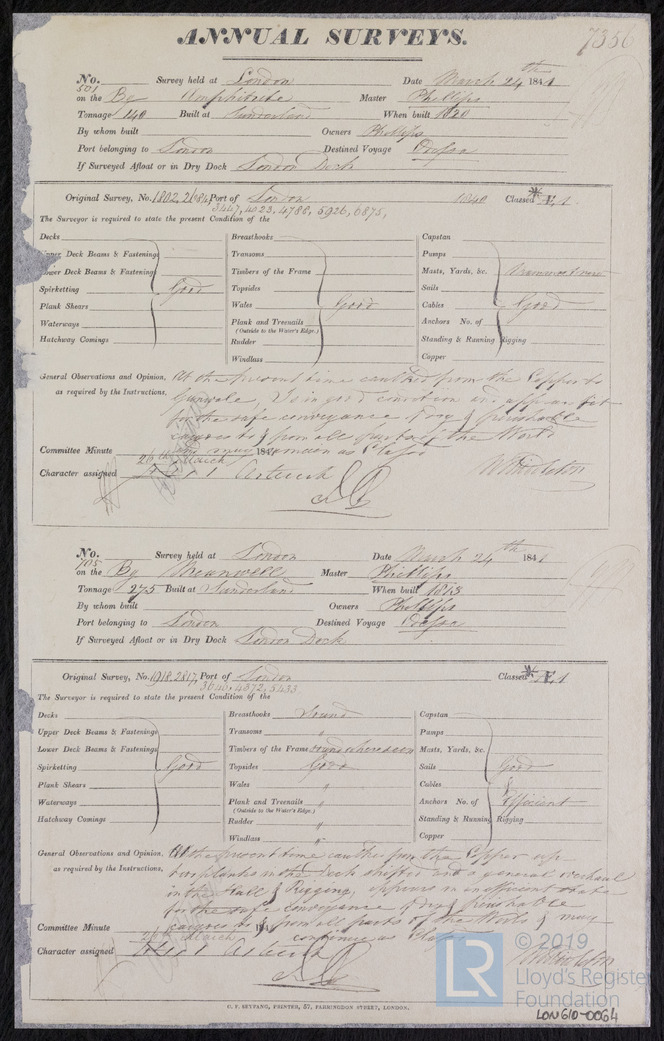 ANNUAL SURVEYS. 7356
No. 501 Survey held at London Date March 24th 1841
on the Bg Amphitrite Master Phillips
Tonnage 140 Built at Sunderland When built 1820
By whom built Owners Phillips
Port belonging to London Destined Voyage Odessa
If Surveyed Afloat or in Dry Dock London Dock
Original Survey, No. 1802, Port of London 1840 Classed Æ 1
3447, 4023, 4788, 5926, 6875,
The Surveyor is required to state the present Condition of the
Decks Breasthooks Capstan
Upper Deck Beams & Fastenings Transoms Pumps
Lower Deck Beams & Fastenings Timbers of the Frame Masts, Yards, &c.
Spirketting Good Topsides Sails
Plank Shears Wales Good Cables Good
Waterways Plank and Treenails Anchors No. of
(Outside to the Water's Edge.)
Hatchway Comings Rudder Standing & Running Rigging
Windlass Copper
General Observations and Opinion, At the present time caulked from the Copper to
as required by the Instructions, Gunwale, Is in good condition and appears fit
for the safe conveyance of dry & perishable
cargoes to & from all parts of the World
and may remain as Classed
Committee Minute 26th March 1841
Character assigned Æ 1
No. 705 Survey held at London Date March 24th 1841
on the Bg Meanwell Master Phillips
Tonnage 275 Built at Sunderland When built 1815
By whom built Owners Phillips
Port belonging to London Destined Voyage Odessa
If Surveyed Afloat or in Dry Dock London Dock
Original Survey, No. 1918, 2817, Port of London Classed Æ 1
3640, 4372, 5433
The Surveyor is required to state the present Condition of the
Decks Breasthooks Sound Capstan
Upper Deck Beams & Fastenings Transoms " Pumps
Lower Deck Beams & Fastenings Timbers of the Frame sound where seen Masts, Yards, &c.
Spirketting Good Topsides Good Sails Good
Plank Shears Wales " Cables &
Waterways Plank and Treenails " Anchors No. of Efficient
(Outside to the Water's Edge.)
Hatchway Comings Rudder " Standing & Running Rigging
Windlass " Copper
General Observations and Opinion, At the present time caulked from the Copper up
as required by the Instructions, two planks in the Deck shifted and a general overhaul
in the Hull & Rigging, appears in efficient state
for the safe conveyance of dry & perishable
cargoes to & from all parts of the World & may
continue as Classed
Committee Minute 26th March 184
Character assigned Æ 1
C. F. SEYFANG, PRINTER, 57, FARRINGDON STREET, LONDON.
© 2019
LR Lloyd's Register
Foundation
LON610-0064